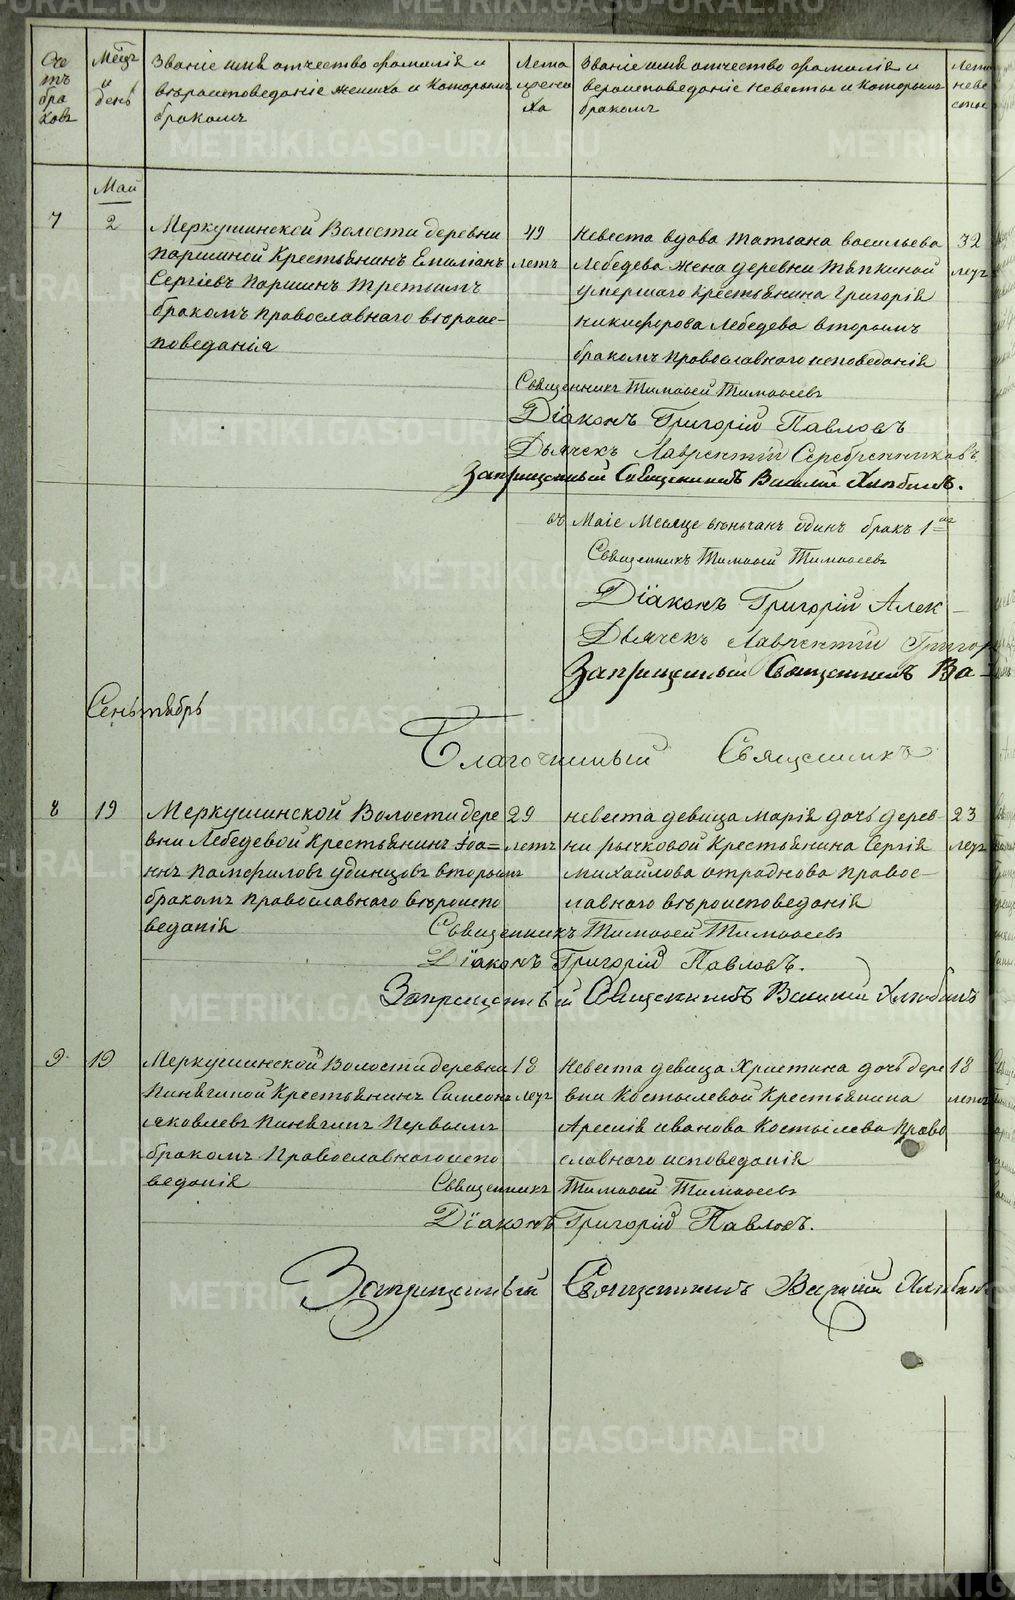 Сче
тъ
бра
ковъ
Мѣцъ
и
день
Званіе имя отчество фамилія и
вѣроисповеданіе жениха и которымъ
бракомъ
Лета
жени
ха
Званіе имя отчество фамилія и
вероисповеданіе невесты и которымъ
бракомъ
Лета
неве
сты
Май
7
2
Меркушинской Волости деревни
Паршиной Крестьянинъ Емилианъ
Сергіевъ Паршинъ третьимъ
бракомъ православнаго вѣроис-
поведанія
49
летъ
Невеста вдова Татьана васильева
Лебедева жена деревни Тяпкиной
умершаго крестьянина Григорія
никифорова Лебедева вторымъ
бракомъ православнаго исповеданія
32
леуг
Священникъ Тимофей Тимофеевъ
Діаконъ Григорій Павловъ
Дьячекъ Лаврентій Серебренниковъ
Запрещенный Священникъ Василій Хлюбинъ.
въ Маіе Месяце вѣньчан один бракъ 1
Священникъ Тимофей Тимофеевъ
Діаконъ Григорій Алек
Дьячекъ Лаврентій Григор
Запрещенный Священникъ Ва
Сеньтябрь
Благочинный Священникъ
8
19
Меркушинской Волости дере
вни Лебедевой Крестьянинъ Іоа=
ннъ Памфиловъ удинцовъ вторым
бракомъ православнаго вѣроиспо
веданія
29
летъ
невеста девица Марія дочь дерев
ни рычковой Крестьянина Сергія
михайлова отраднова правос-
лавнаго вѣроисповеданія
23
леуг
Священникъ Тимофей Тимофеевъ
Діаконъ Григорій Павловъ.
Запрещенный Священникъ Василій Хлюбинъ
9
19
Меркушинской Волости деревни
Пинягиной Крестьянинъ Симеонъ
яковлевъ Пинягинъ Первымъ
бракомъ Православнаго испо
веданія
18
леуг
Невеста девица Христина дочь дере
вни Костылевой Крестьянина
Арсенія иванова Костылева Право
славнаго исповеданія
18
летъ
Священникъ Тимофей Тимофеевъ
Діаконъ Григорій Павловъ.
Запрещенный Священникъ Василій Хлюбинъ
METRIKI.GASO-URAL.RU